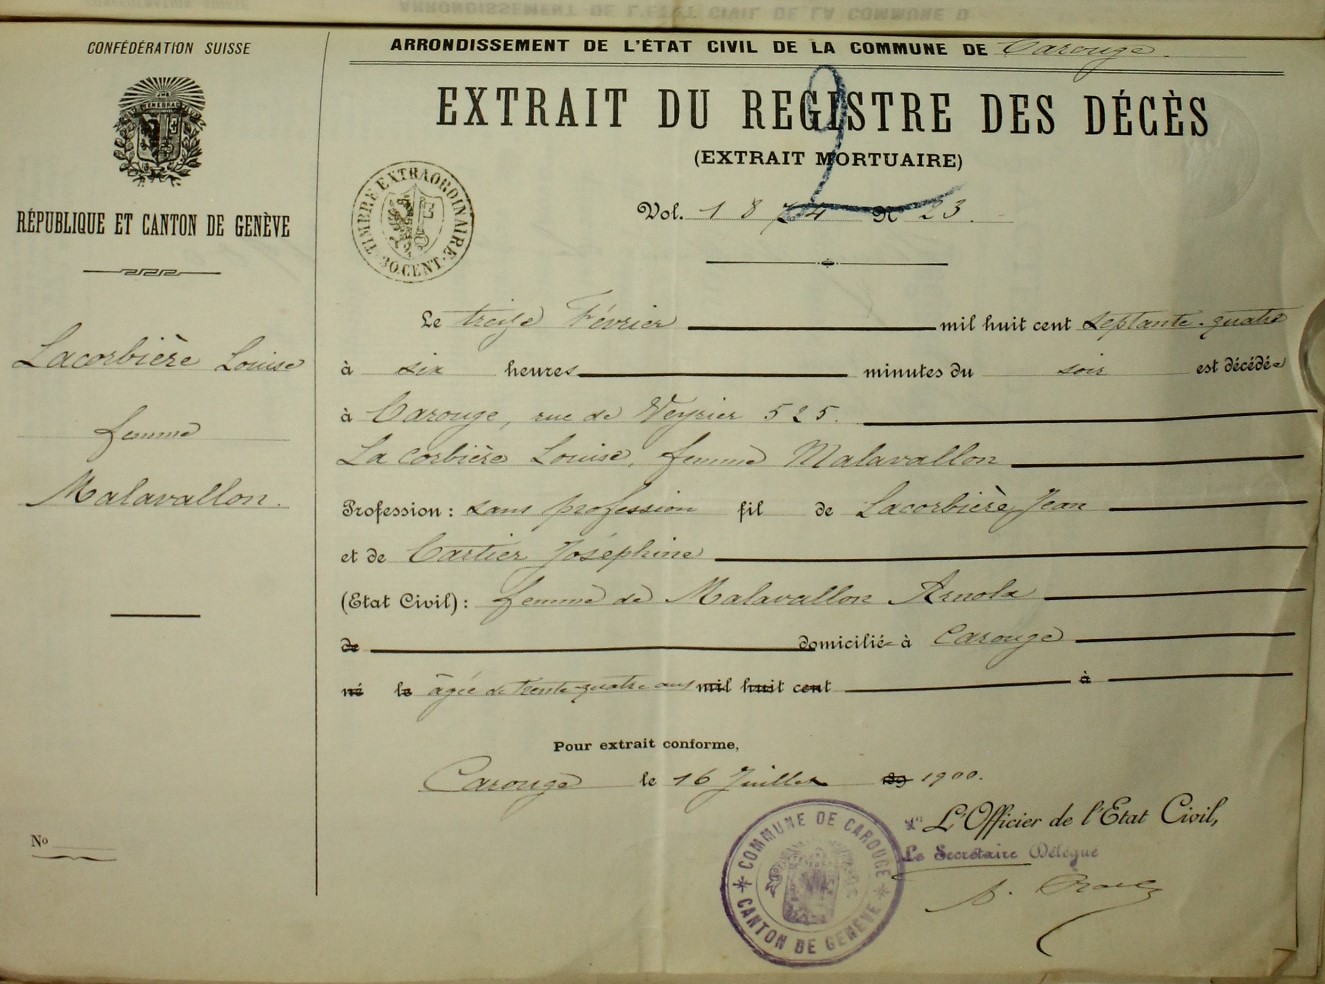 CONFÉDÉRATION SUISSE
RÉPUBLIQUE ET CANTON DE GENÈVE
Lacorbière Louise
femme
Malavallon.
No
ARRONDISSEMENT DE L'ÉTAT CIVIL DE LA COMMUNE DE Carouge
EXTRAIT DU REGISTRE DES DÉCÈS
(EXTRAIT MORTUAIRE)
2
TIMBRE EXTRAORDINAIRE
30.CENT.
Vol. 1874 No 23.
Le treize Février mil huit cent septante-quatre
à six heures minutes du soir est décédée
à Carouge, rue de Veyrier 525.
La corbière Louise, femme Malavallon
Profession : sans profession fil de Lacorbière Jean
et de Cartier Joséphine
(Etat Civil) : femme de Malavallon
de domiciliée à Carouge
né le âgée de trente-quatre ans mil huit cent à
Pour extrait conforme,
Carouge le 16 Juillet 189 1900.
L'Officier de l'Etat Civil,
Le Secrétaire Délégué
COMMUNE DE CAROUGE
CANTON DE GENÈVE